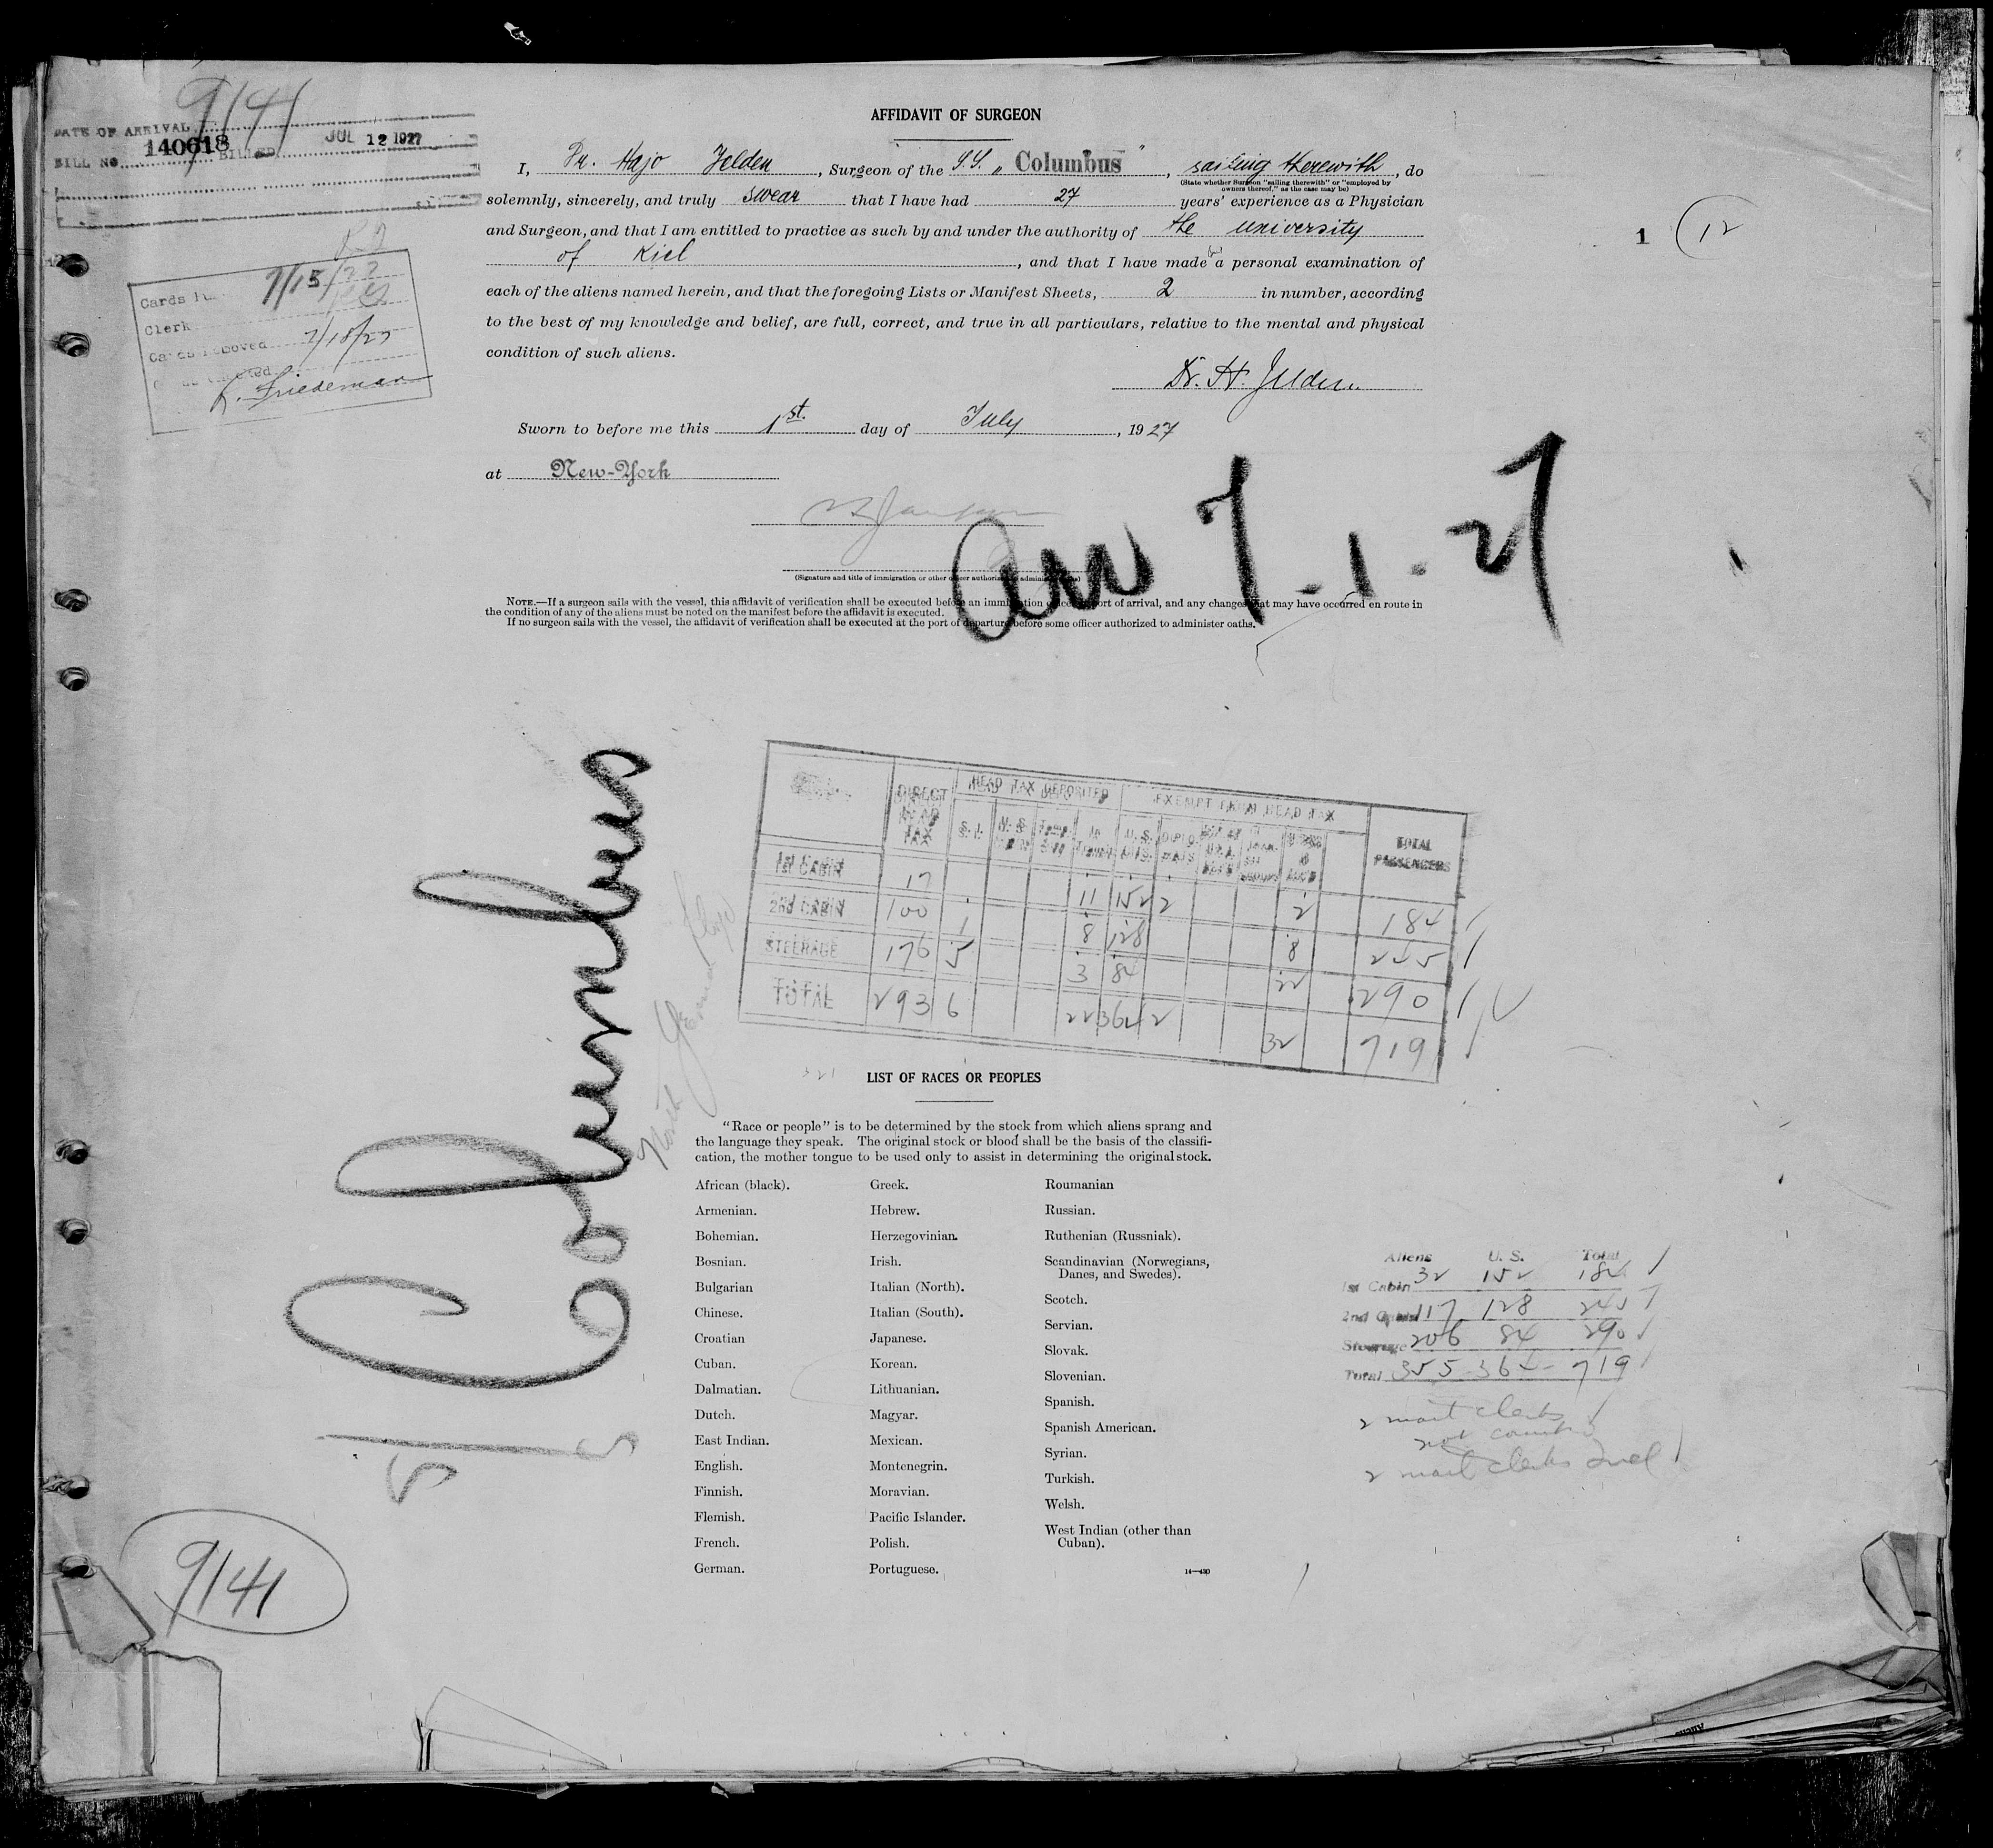 9141
DATE OF ARRIVAL
BILL NO. 140618 BILLED JUL 12 1927
AFFIDAVIT OF SURGEON
I, Dr. Hajo Jelden, Surgeon of the S.S. „Columbus", sailing therewith, do
(State whether Surgeon "sailing therewith" or "employed by
owners thereof," as the case may be)
solemnly, sincerely, and truly swear that I have had 27 years' experience as a Physician
and Surgeon, and that I am entitled to practice as such by and under the authority of the university
of Kiel, and that I have made a personal examination of
each of the aliens named herein, and that the foregoing Lists or Manifest Sheets, 2 in number, according
to the best of my knowledge and belief, are full, correct, and true in all particulars, relative to the mental and physical
condition of such aliens.
1 12
Dr. H. Jelden
Cards 7/15/27
Clerk
Cards removed 7/18/27
K. Friedeman
Sworn to before me this 1st. day of July, 1927
at New-York
(Signature and title of immigration or other officer authorized to administer oaths)
arr 7-1-27
NOTE.—If a surgeon sails with the vessel, this affidavit of verification shall be executed before an immigration officer port of arrival, and any changes that may have occurred en route in
the condition of any of the aliens must be noted on the manifest before the affidavit is executed.
If no surgeon sails with the vessel, the affidavit of verification shall be executed at the port of departure before some officer authorized to administer oaths.
S/S Columbus
North German Lloyd
DIRECT HEAD TAX HEAD TAX DEPOSITED EXEMPT FROM HEAD TAX TOTAL PASSENGERS
S. I. In Transit U. S. DIPLOMATS
1st CABIN 17 11 152 2 2 184
2nd CABIN 100 1 8 128 8 245
STEERAGE 176 5 3 84 22 290
TOTAL 293 6 22 364 2 32 719
321
LIST OF RACES OR PEOPLES
"Race or people" is to be determined by the stock from which aliens sprang and
the language they speak. The original stock or blood shall be the basis of the classifi-
cation, the mother tongue to be used only to assist in determining the original stock.
African (black).
Armenian.
Bohemian.
Bosnian.
Bulgarian
Chinese.
Croatian
Cuban.
Dalmatian.
Dutch.
East Indian.
English.
Finnish.
Flemish.
French.
German.
Greek.
Hebrew.
Herzegovinian.
Irish.
Italian (North).
Italian (South).
Japanese.
Korean.
Lithuanian.
Magyar.
Mexican.
Montenegrin.
Moravian.
Pacific Islander.
Polish.
Portuguese.
Roumanian
Russian.
Ruthenian (Russniak).
Scandinavian (Norwegians,
Danes, and Swedes).
Scotch.
Servian.
Slovak.
Slovenian.
Spanish.
Spanish American.
Syrian.
Turkish.
Welsh.
West Indian (other than
Cuban).
14—430
Aliens U. S. Total
1st Cabin 32 152 184
2nd Cabin 117 128 245
Steerage 206 84 290
Total 355 364 719
2 mail clerks
not counted
2 mail clerks incl
9141